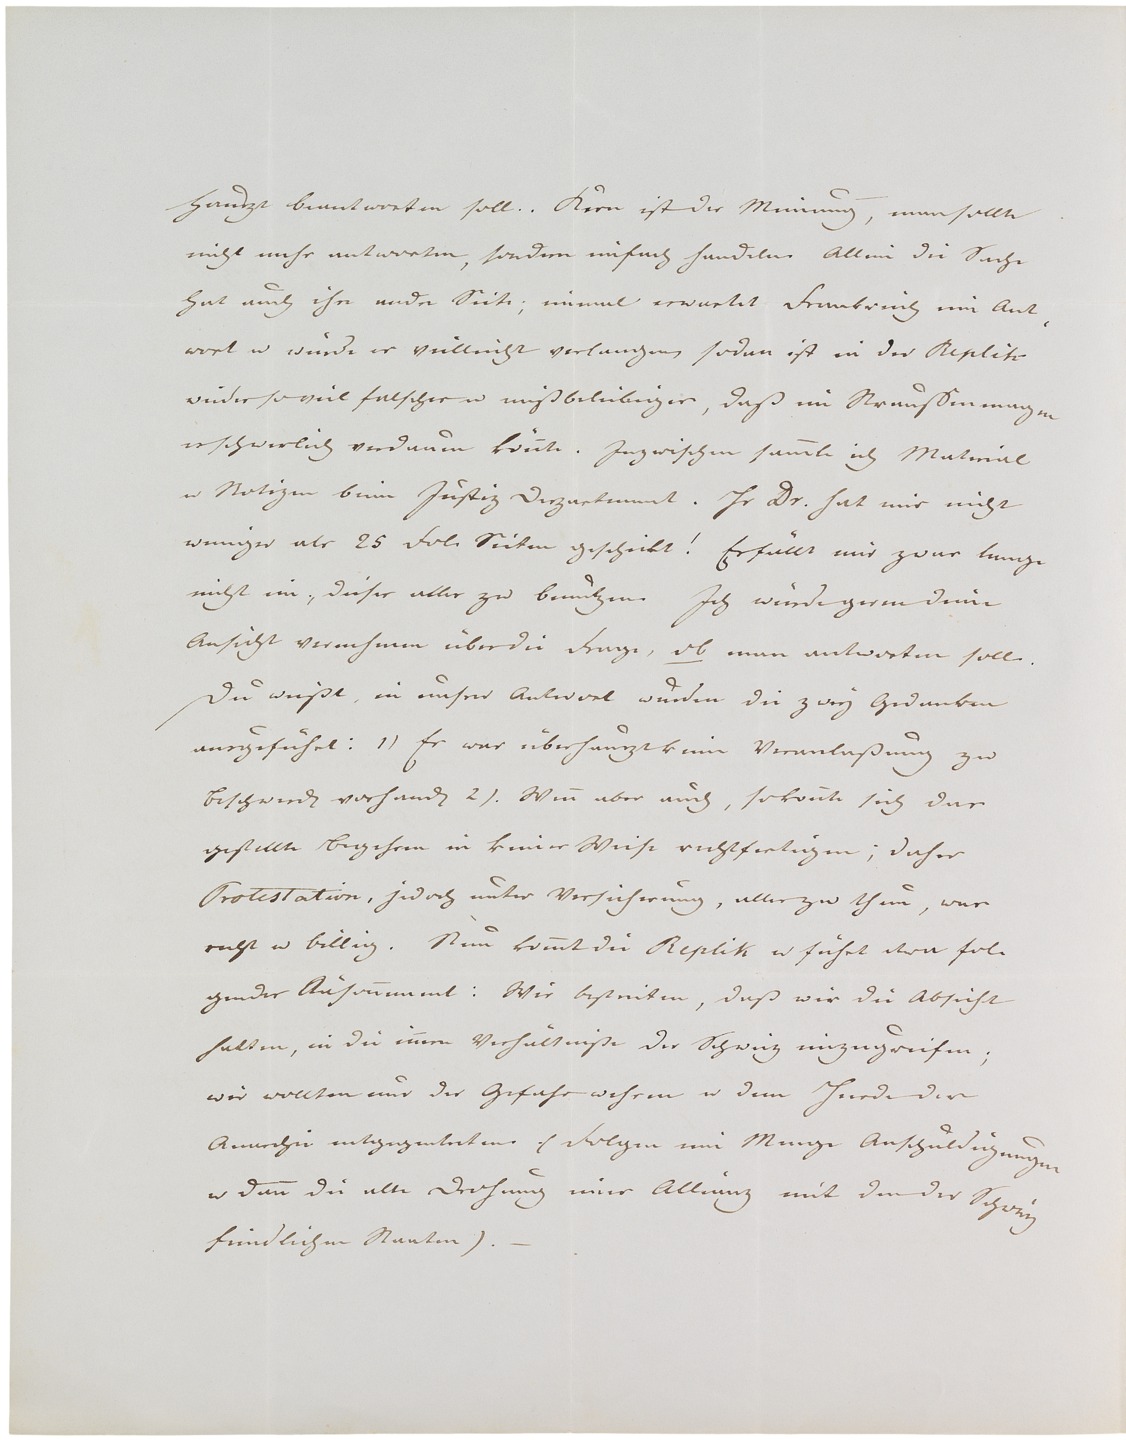 haupt beantworten soll. Kern ist der Meinung, man sollte
nicht mehr antworten, sondern einfach handeln. Allein die Sache
hat auch ihre andre Seite; einmal erwartet Frankreich eine Ant-
wort u würde es vielleicht verlangen, sodan ist in der Replik
wieder so viel falsches u mißbeliebiges, daß ein Straussenmagen
es schwerlich verdauen könte. Inzwischen samle ich Material
u Notizen beim Justiz Departement. Ihr Dr. hat mir nicht
weniger als 25 Fol. Seiten geschickt! Es fällt mir zwar lange
nicht ein, dieses alles zu benutzen. Ich würde gerne deine
Ansicht vernehmen über die Frage, ob man antworten soll.
Du weißt, in unsrer Antwort wurden die zwey Gedanken
ausgeführt: 1) Es war überhaupt keine Veranlaßung zu
Beschwerd vorhand 2). Wenn aber auch, so konte sich das
gestellte Begehren in keiner Weise rechtfertigen; daher
Protestation, jedoch unter Versicherung, alles zu thun, was
recht u billig. Nun komt die Replik u führt etwa fol-
gendes Räsonnement: Wir bestreiten, daß wir die Absicht
hatten, in die innern Verhältniße der Schweiz einzugreifen;
wir wollten nur der Gefahr wehren u dem Herde der
Anarchie entgegentreten (Folgen eine Menge Anschuldigungen
u dann die alte Drohung einer Allianz mit den der Schweiz
feindlichen Staaten). —